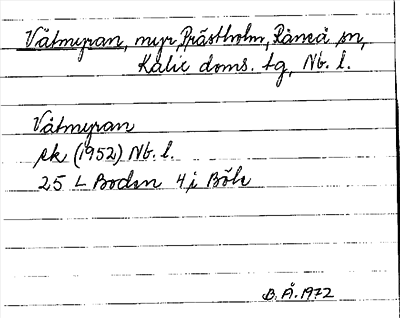 Våtmyran, myr, Prästholm, Råneå sn,
Kalix doms. tg, Nb. l.
Våtmyran
ek (1952) Nb. l.
25 L Boden 4 i Böle
B. Å. 1972